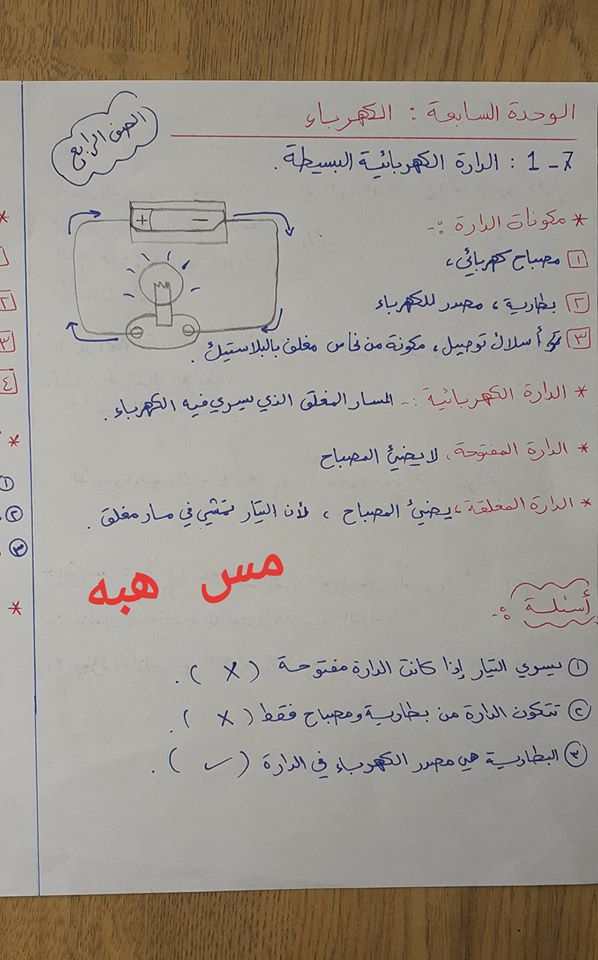 الصف الرابع
الوحدة السابعة : الكهرباء
7 - 1 : الدارة الكهربائية البسيطة .
* مكونات الدارة :-
١ مصباح كهربائي ،
٢ بطارية ، مصدر للكهرباء
٣ أسلاك توصيل ، مكونة من نحاس مغلف بالبلاستيك .
+ -
* الدارة الكهربائية :- المسار المغلق الذي يسري فيه الكهرباء .
* الدارة المفتوحة ، لا يضيئ المصباح
* الدارة المغلقة ، يضيئ المصباح ، لأن التيار يمشي في مسار مغلق .
مس هبه
أسئلة :-
١ يسري التيار إذا كانت الدارة مفتوحة ( X ) .
٢ تتكون الدارة من بطارية ومصباح فقط ( X ) .
٣ البطارية هي مصدر الكهرباء في الدارة ( ✓ ) .
*
٢
٣
٤
*
١
٢
٣
*